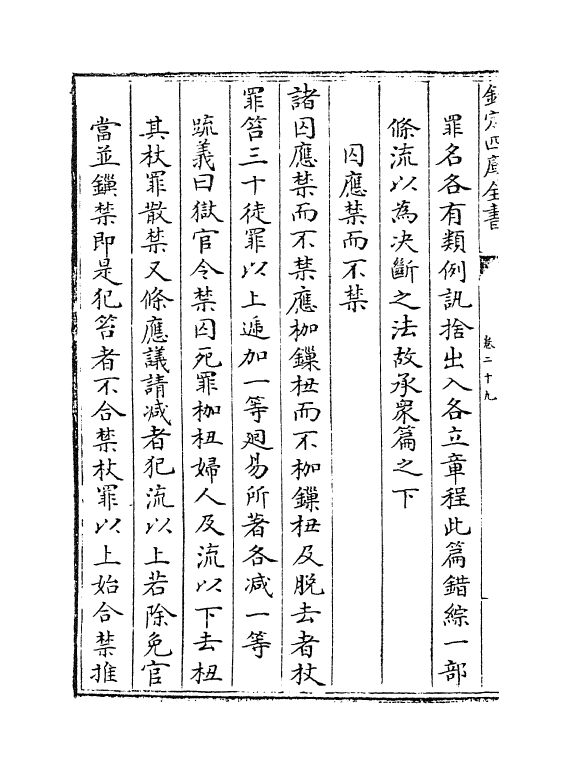 欽定四庫全書
卷二十九
罪名各有類例訊捨出入各立章程此篇錯綜一部
條流以為決斷之法故承衆篇之下
囚應禁而不禁
諸囚應禁而不禁應枷鏁杻而不枷鏁杻及脱去者杖
罪笞三十徒罪以上遞加一等廻易所著各減一等
疏義曰獄官令禁囚死罪枷杻婦人及流以下去杻
其杖罪散禁又條應議請減者犯流以上若除免官
當並鏁禁即是犯笞者不合禁杖罪以上始合禁推